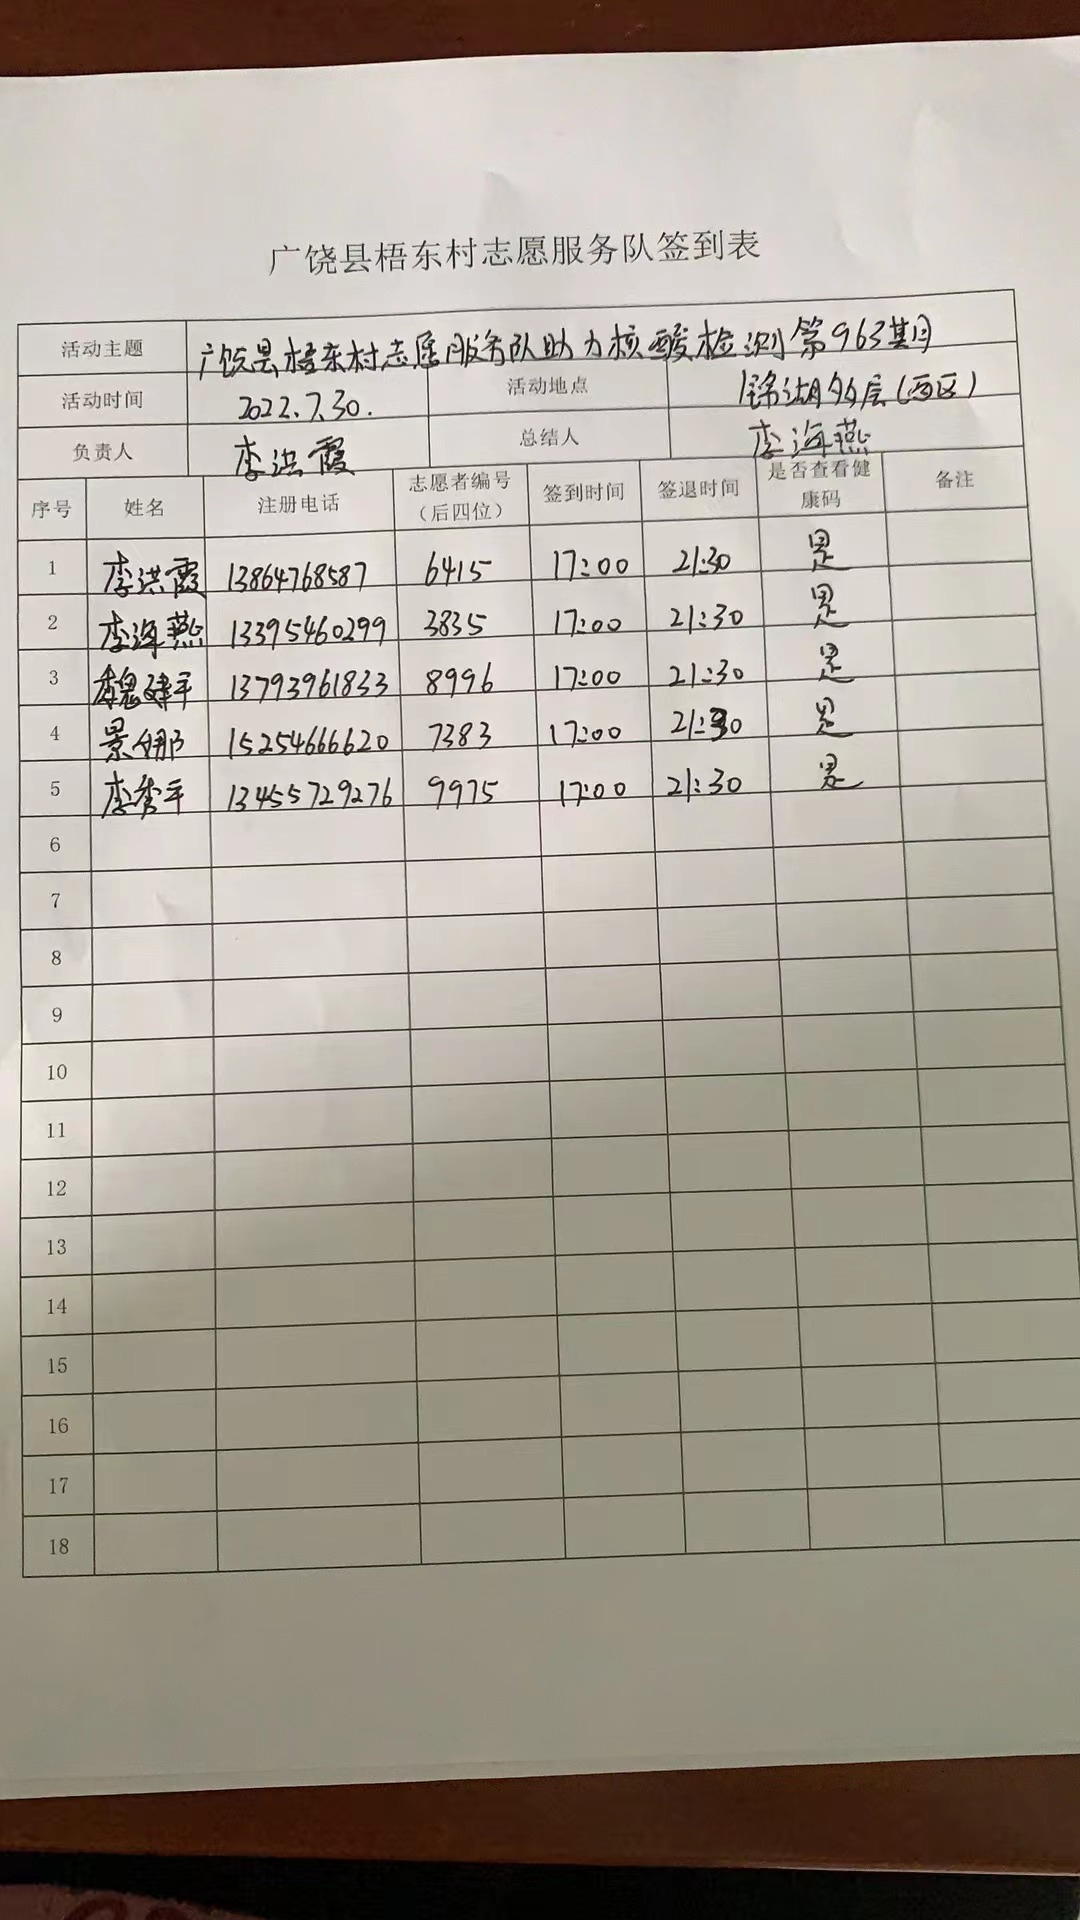 广饶县梧东村志愿服务队签到表
活动主题 广饶县梧东村志愿服务队助力核酸检测第963期
活动时间 2022.7.30. 活动地点 锦湖多层(西区)
负责人 李洪霞 总结人 李海燕
序号 姓名 注册电话 志愿者编号（后四位） 签到时间 签退时间 是否查看健康码 备注
1 李洪霞 13864768587 6415 17:00 21:30 是
2 李海燕 13395460299 3835 17:00 21:30 是
3 魏建平 13793961833 8996 17:00 21:30 是
4 景娜 15254666620 7383 17:00 21:30 是
5 李秀平 13455729276 9975 17:00 21:30 是
6
7
8
9
10
11
12
13
14
15
16
17
18